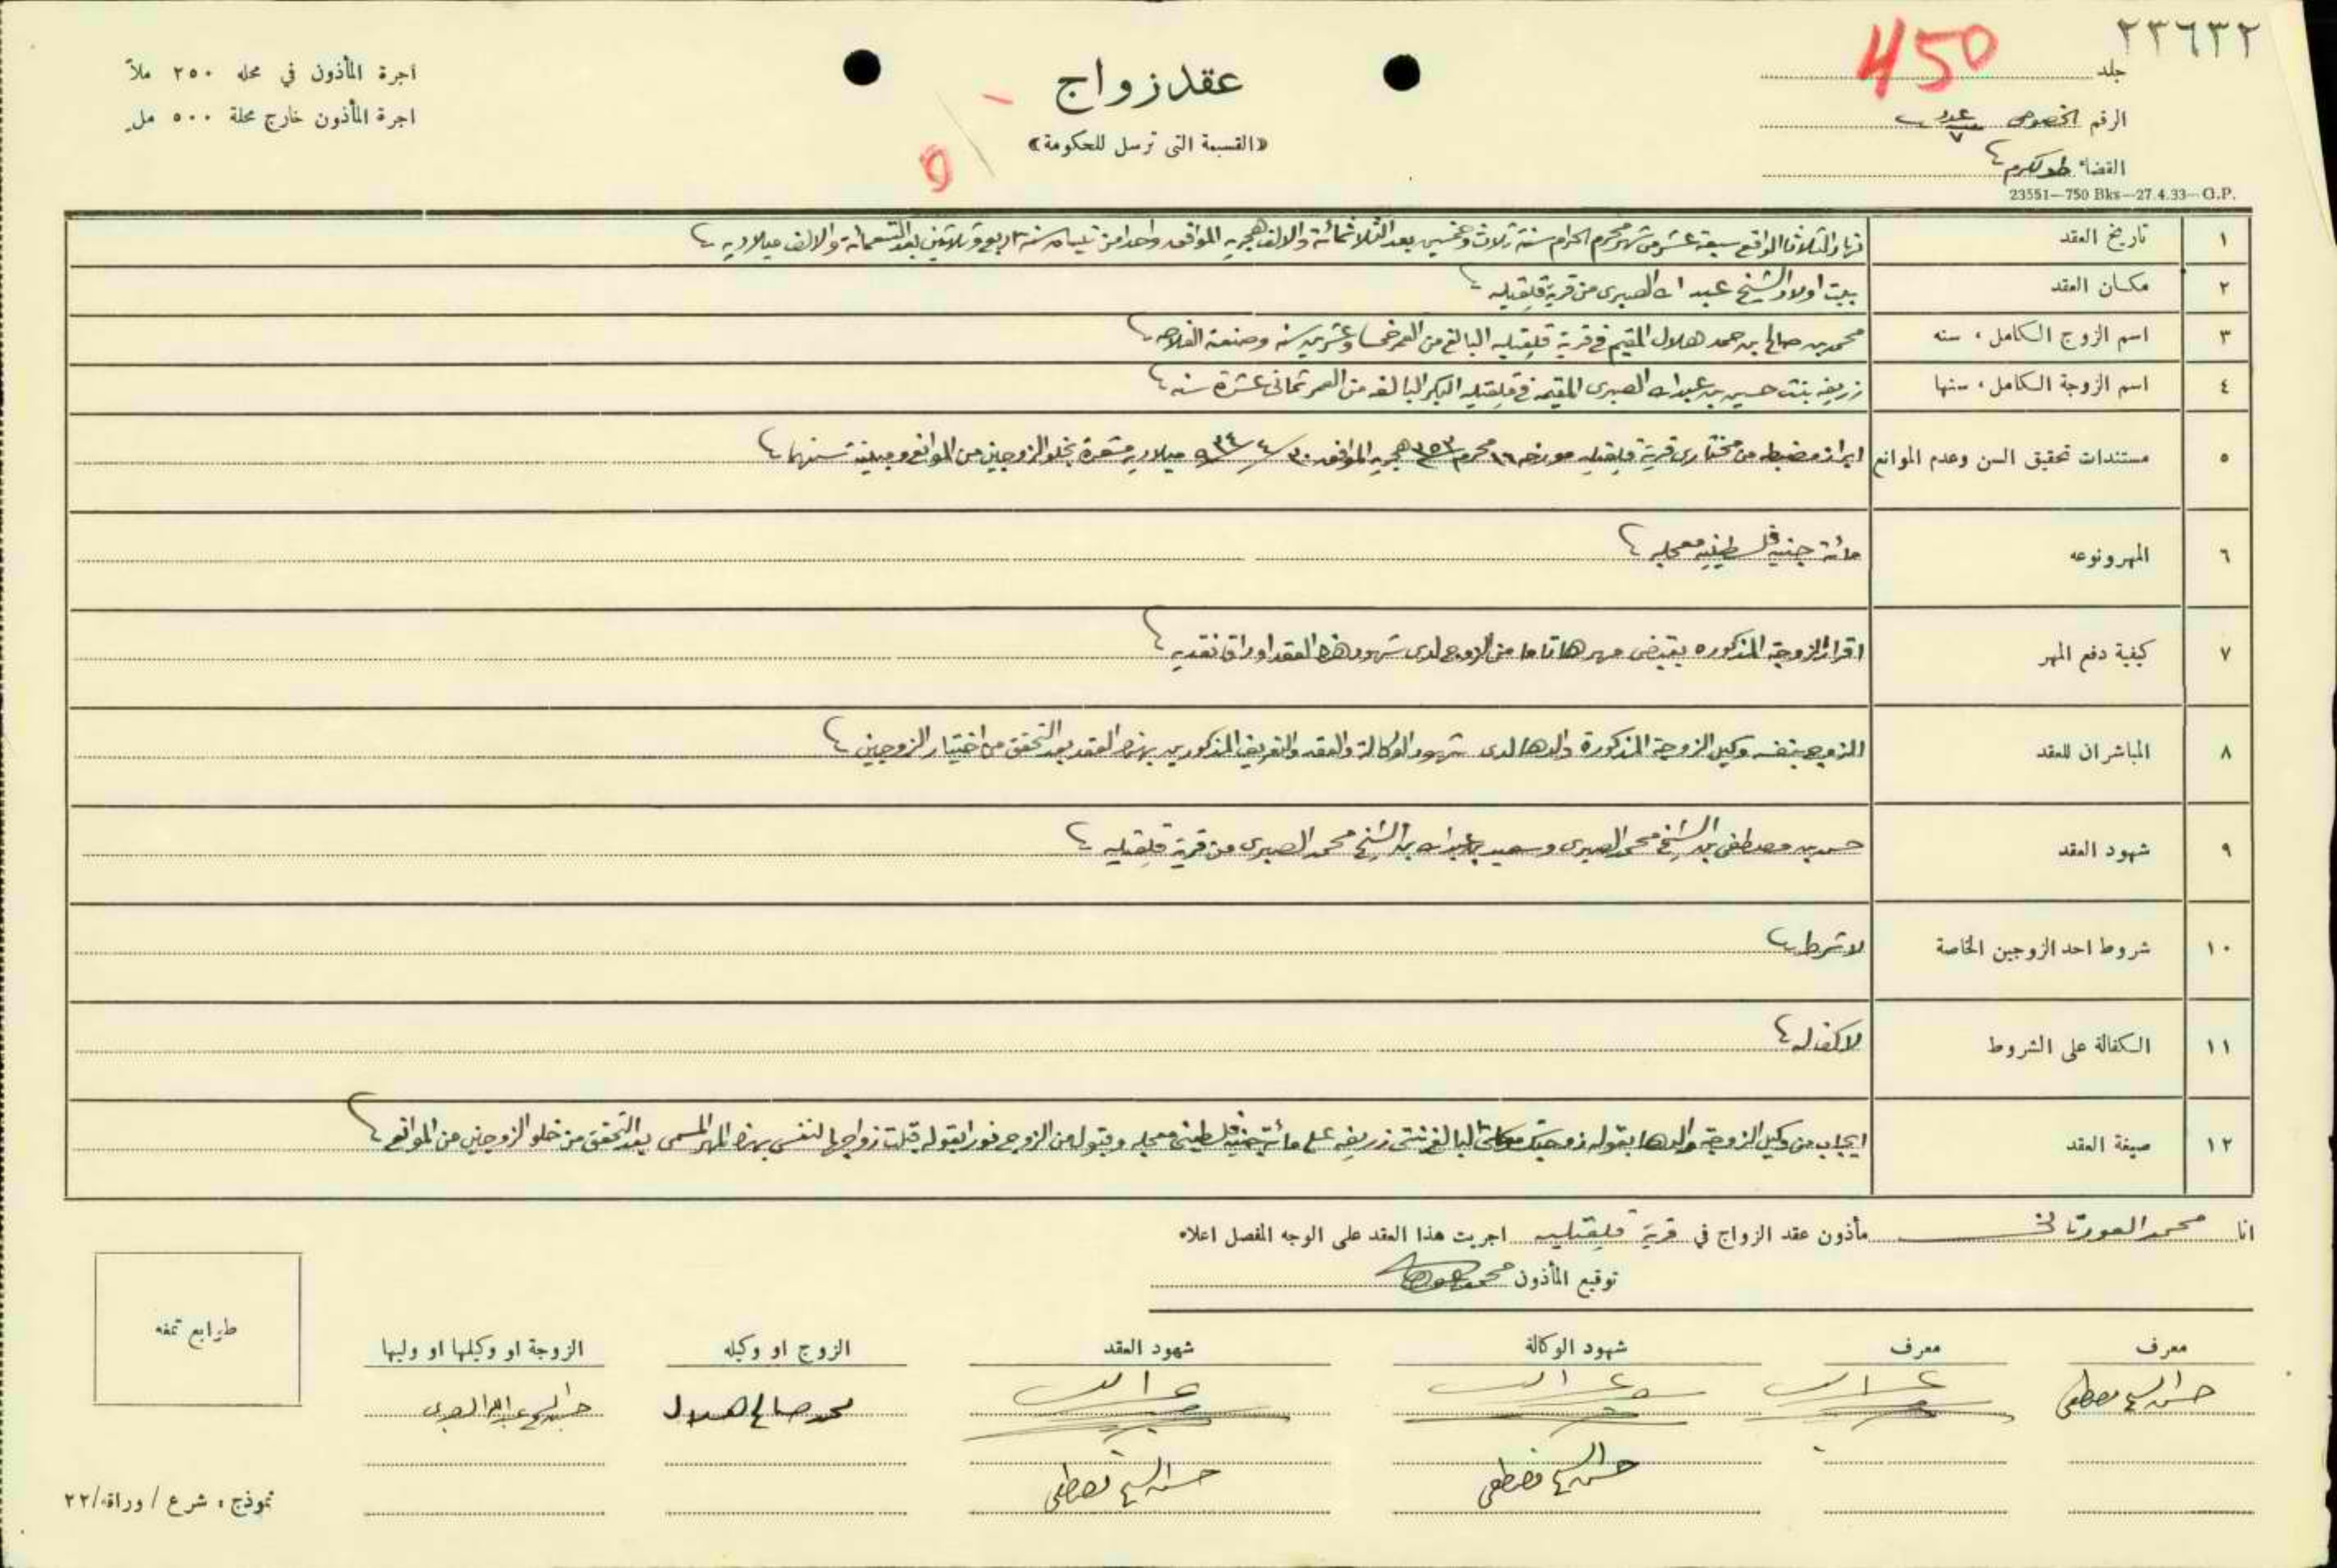 ٢٣٦٣٢
450
جلد
الرقم الخصوصي عدد ٧
القضاء طولكرم
23551—750 Bks—27.4.33—G.P.
عقد زواج
«القسيمة التي ترسل للحكومة»
اجرة المأذون في محله ٢٥٠ ملاً
اجرة المأذون خارج محلة ٥٠٠ مل
١ تاريخ العقد نهار الثلاثا الواقع سبعة عشر من شهر محرم الحرام سنة ثلاث وخمسين بعد الثلاثمائة والالف هجريه الموافق واحد من نيسان سنة اربع وثلاثين بعد التسعمائة والالف ميلاديه
٢ مكان العقد ببيت اولاد الشيخ عبد الله الصبري من قرية قلقيليه
٣ اسم الزوج الكامل، سنه محمد بن صالح بن حمد هلال المقيم في قرية قلقيليه البالغ من العمر خمسا وعشرين سنه وصنعته الفلاحه
٤ اسم الزوجة الكامل، سنها زريفه بنت حسين بن عبد الله الصبري المقيمه في قلقيليه البكر البالغه من العمر ثماني عشرة سنه
٥ مستندات تحقيق السن وعدم الموانع ابراز مضبطه من مختاري قرية قلقيليه مورخه ١٦ محرم ١٣٥٣ هجريه الموافق ٣٠/٤/٩٣٤ ميلاديه مشعرة بخلو الزوجين من الموانع ومبينة سنهما
٦ المهر ونوعه مائة جنيه فلسطينيه معجله
٧ كيفية دفع المهر اقرار الزوجة المذكوره بقبض مهرها تاما من الزوج لدى شهود هذا العقد اوراقا نقديه
٨ المباشران للعقد الزوج بنفسه وكيل الزوجة المذكورة والدها لدى شهود الوكالة والعقد والتعريف المذكورين بهذا العقد بعد التحقق من اختيار الزوجين
٩ شهود العقد حسن بن مصطفى بن الشيخ محمد الصبري وسعيد بن عبد الله بن الشيخ محمد الصبري من قرية قلقيليه
١٠ شروط احد الزوجين الخاصة لا شرط
١١ الكفالة على الشروط لا كفاله
١٢ صيغة العقد ايجاب من وكيل الزوجة والدها بقوله زوجتك موكلتي البالغه بنتي زريفه على مائة جنيه فلسطيني معجله وقبول من الزوج فورا بقوله قبلت زواجها لنفسي بهذا المهر المسمى بعد التحقق من خلو الزوجين من الموانع
انا محمد العورتاني مأذون عقد الزواج في قرية قلقيليه اجريت هذا العقد على الوجه المفصل اعلاه
توقيع المأذون محمد
معرف معرف شهود الوكالة شهود العقد الزوج او وكيله الزوجة او وكيلها او وليها
حسن الشيخ مصطفى محمد صالح هلال حسين الشيخ عبد الله الصبري
حسن الشيخ مصطفى حسن الشيخ مصطفى
طوابع تمغه
نموذج، شرع / وراق/٢٢